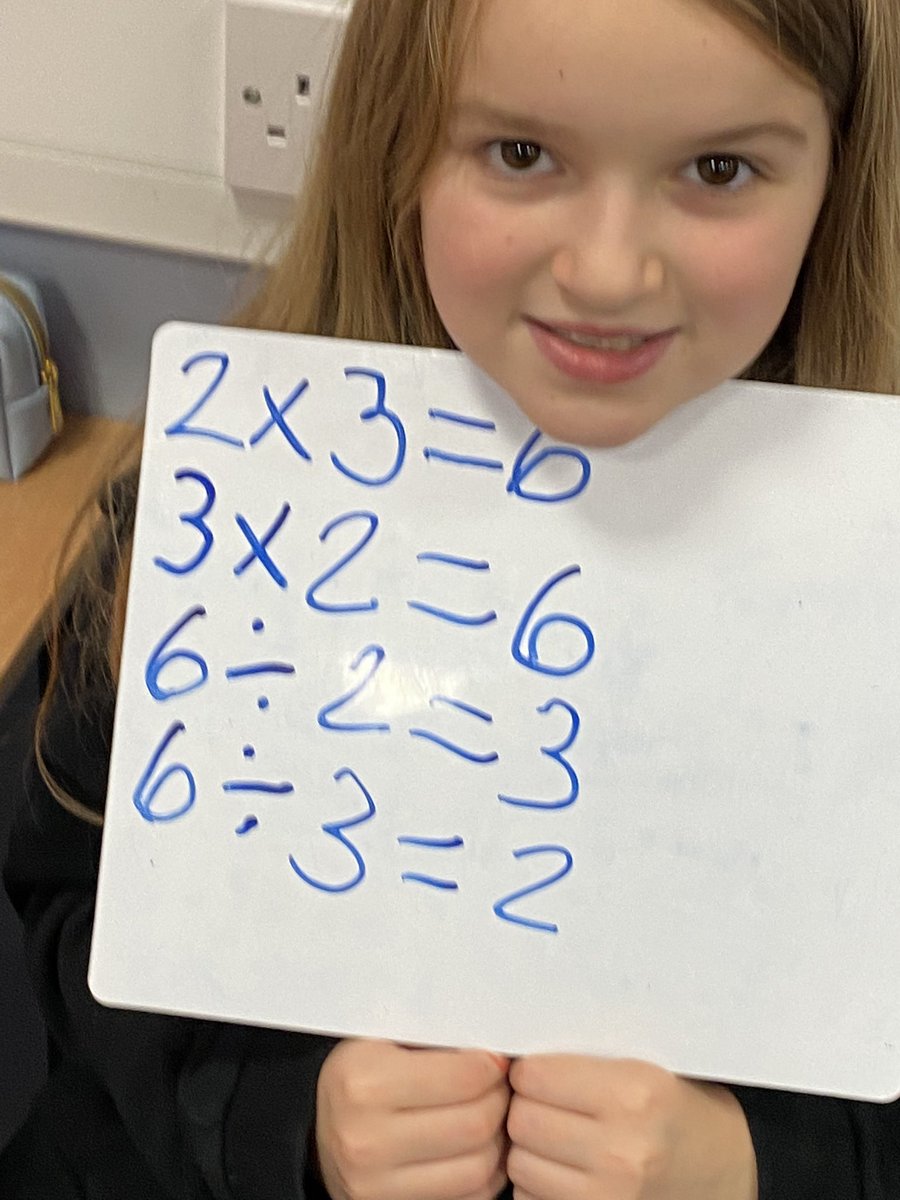 2 × 3 = 6
3 × 2 = 6
6 ÷ 2 = 3
6 ÷ 3 = 2